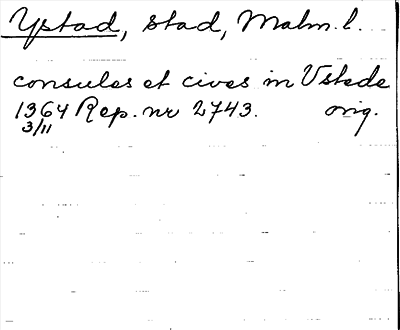 Ystad, stad, Malm. l.
consules et cives in Vstede
1364 Rep. nr 2743. orig.
3/11